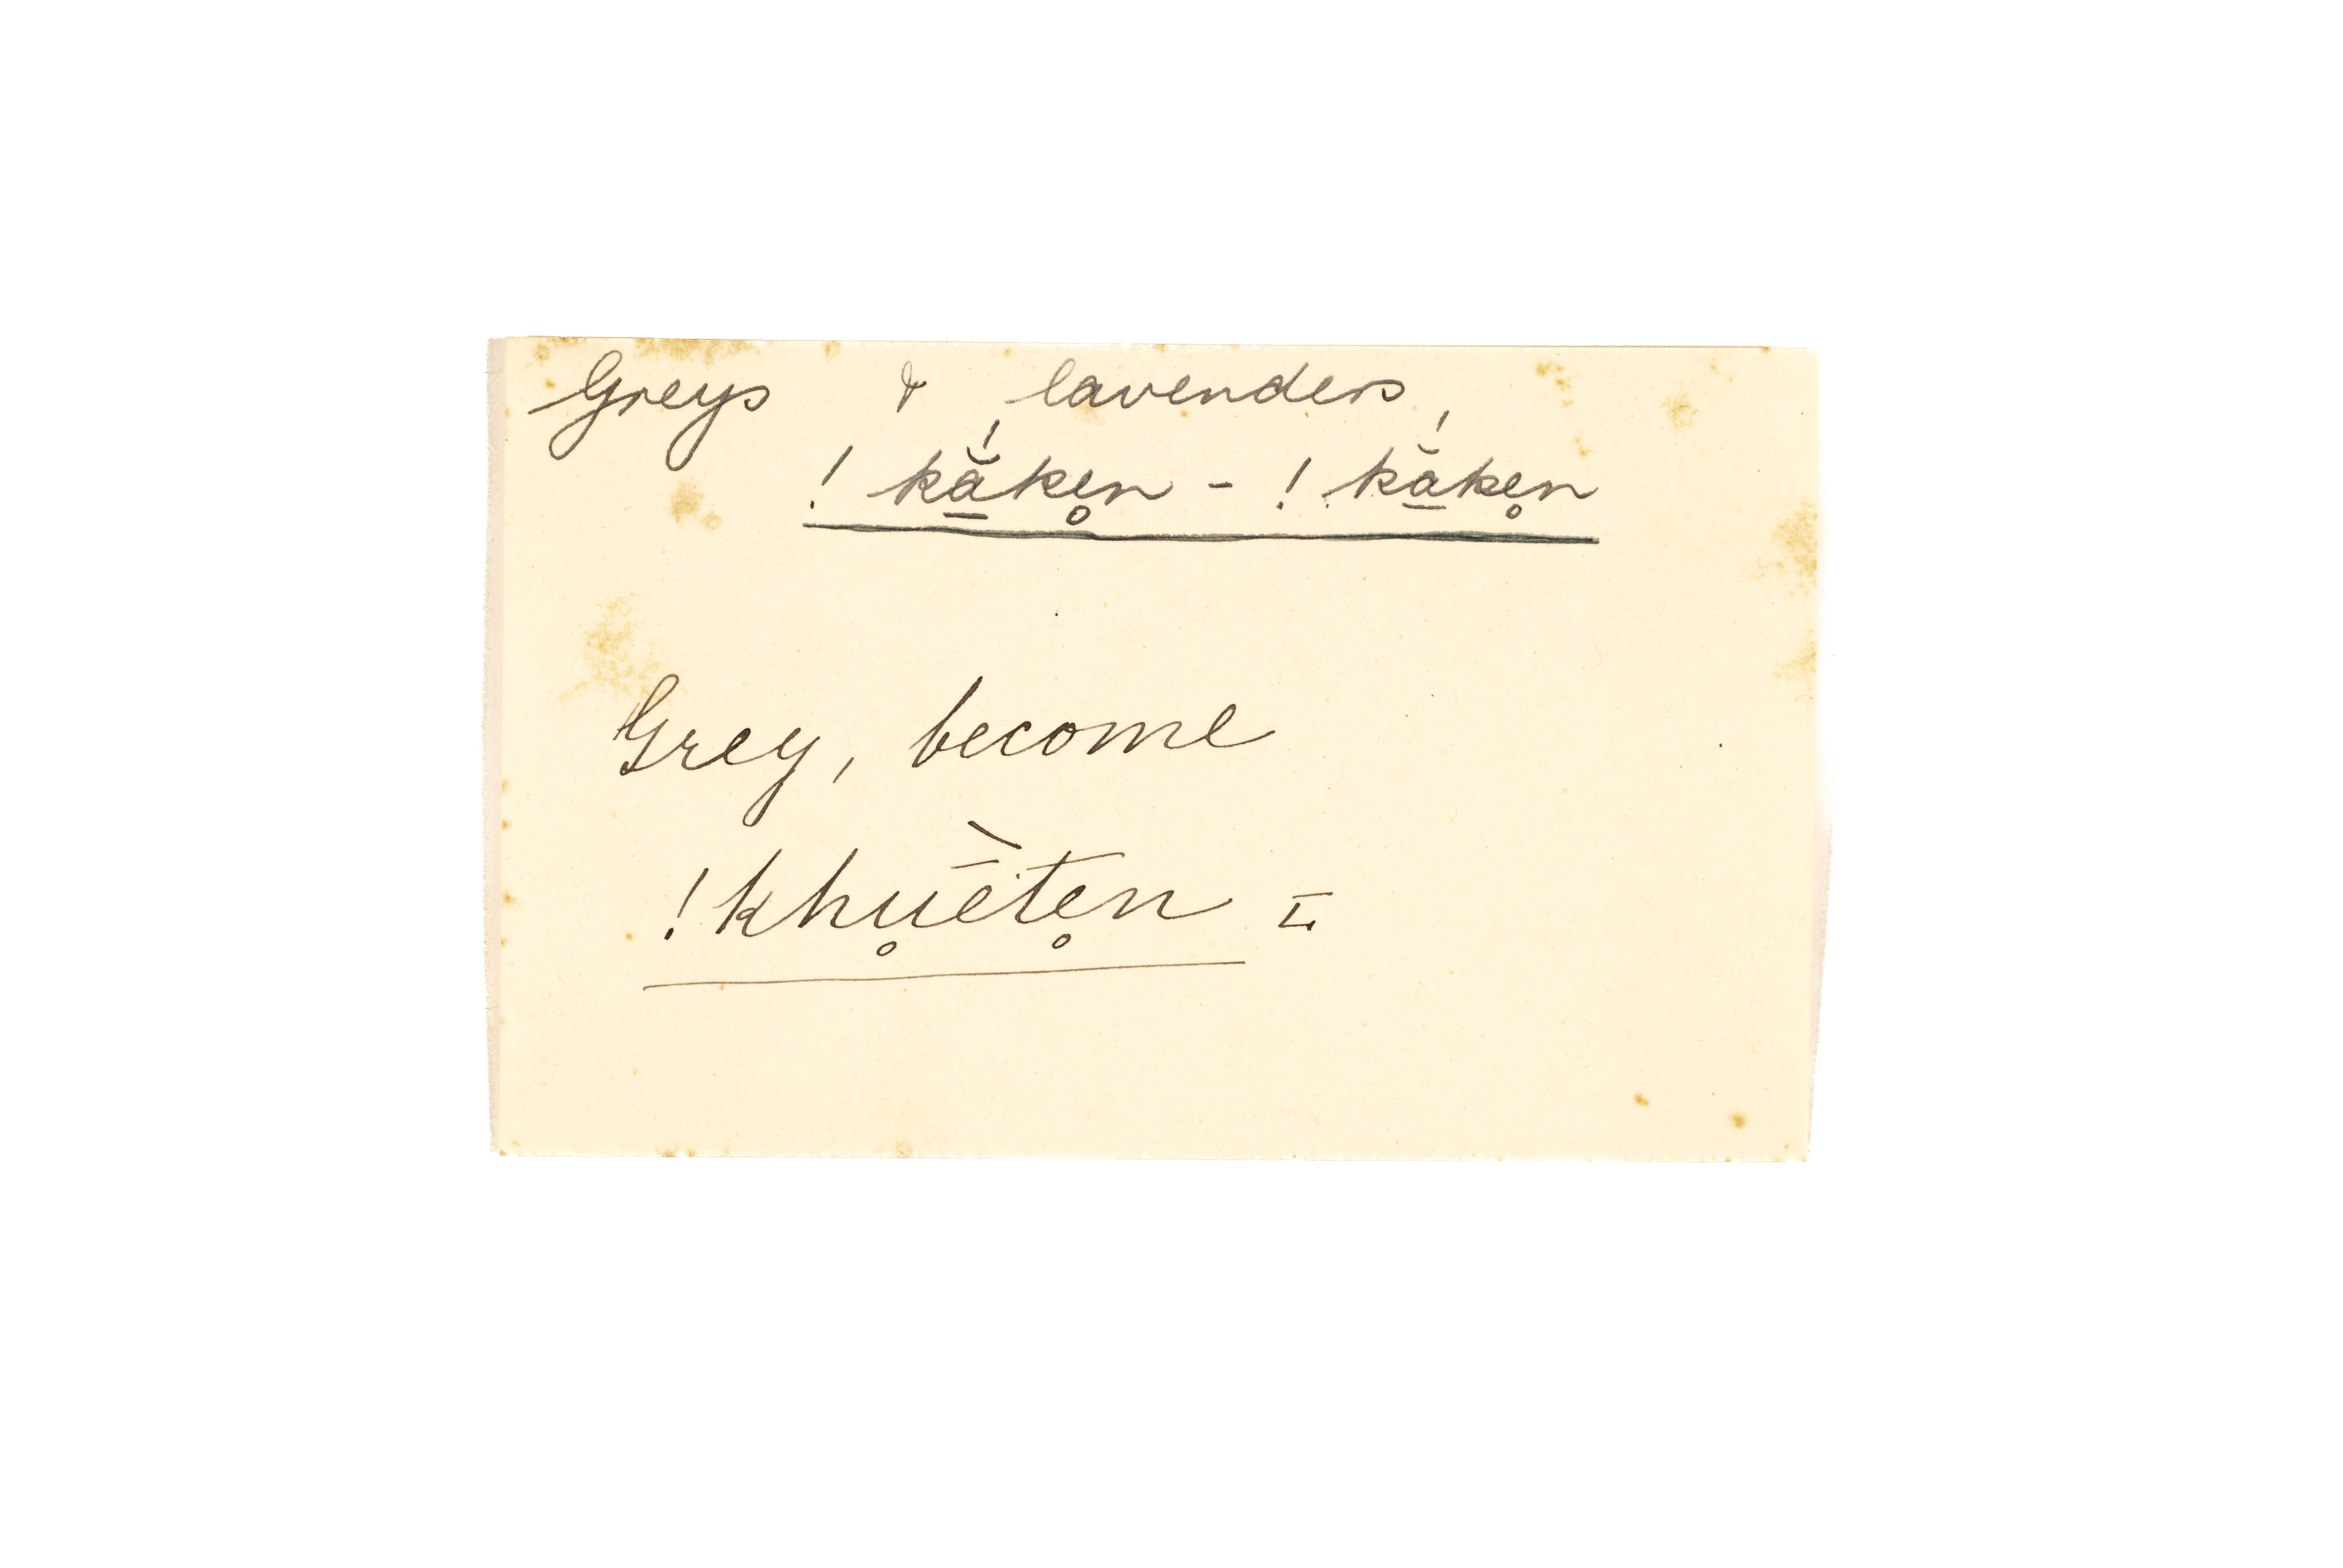 Greys & lavenders,
! kā̱̆́ke̥n - ! kā̱̆́ke̥n
Grey, become
!khu̥ḕte̥n I.